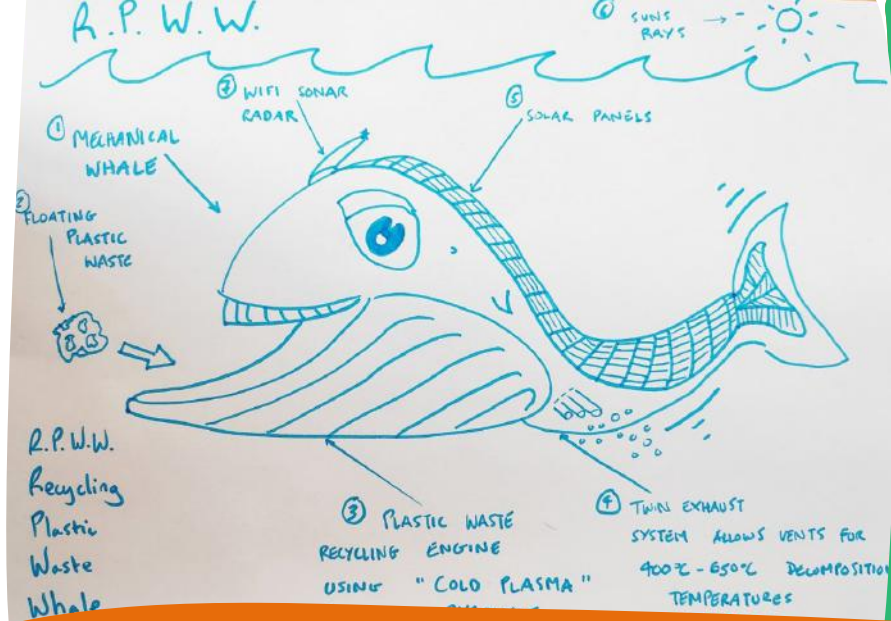 R.P.W.W.
⑥ SUNS
RAYS
⑦ WIFI SONAR
RADAR
⑤
SOLAR PANELS
① MECHANICAL
WHALE
②
FLOATING
PLASTIC
WASTE
R.P.W.W.
Recycling
Plastic
Waste
Whale
③ PLASTIC WASTE
RECYCLING ENGINE
USING "COLD PLASMA"
④ TWIN EXHAUST
SYSTEM ALLOWS VENTS FOR
400°C - 650°C DECOMPOSITION
TEMPERATURES